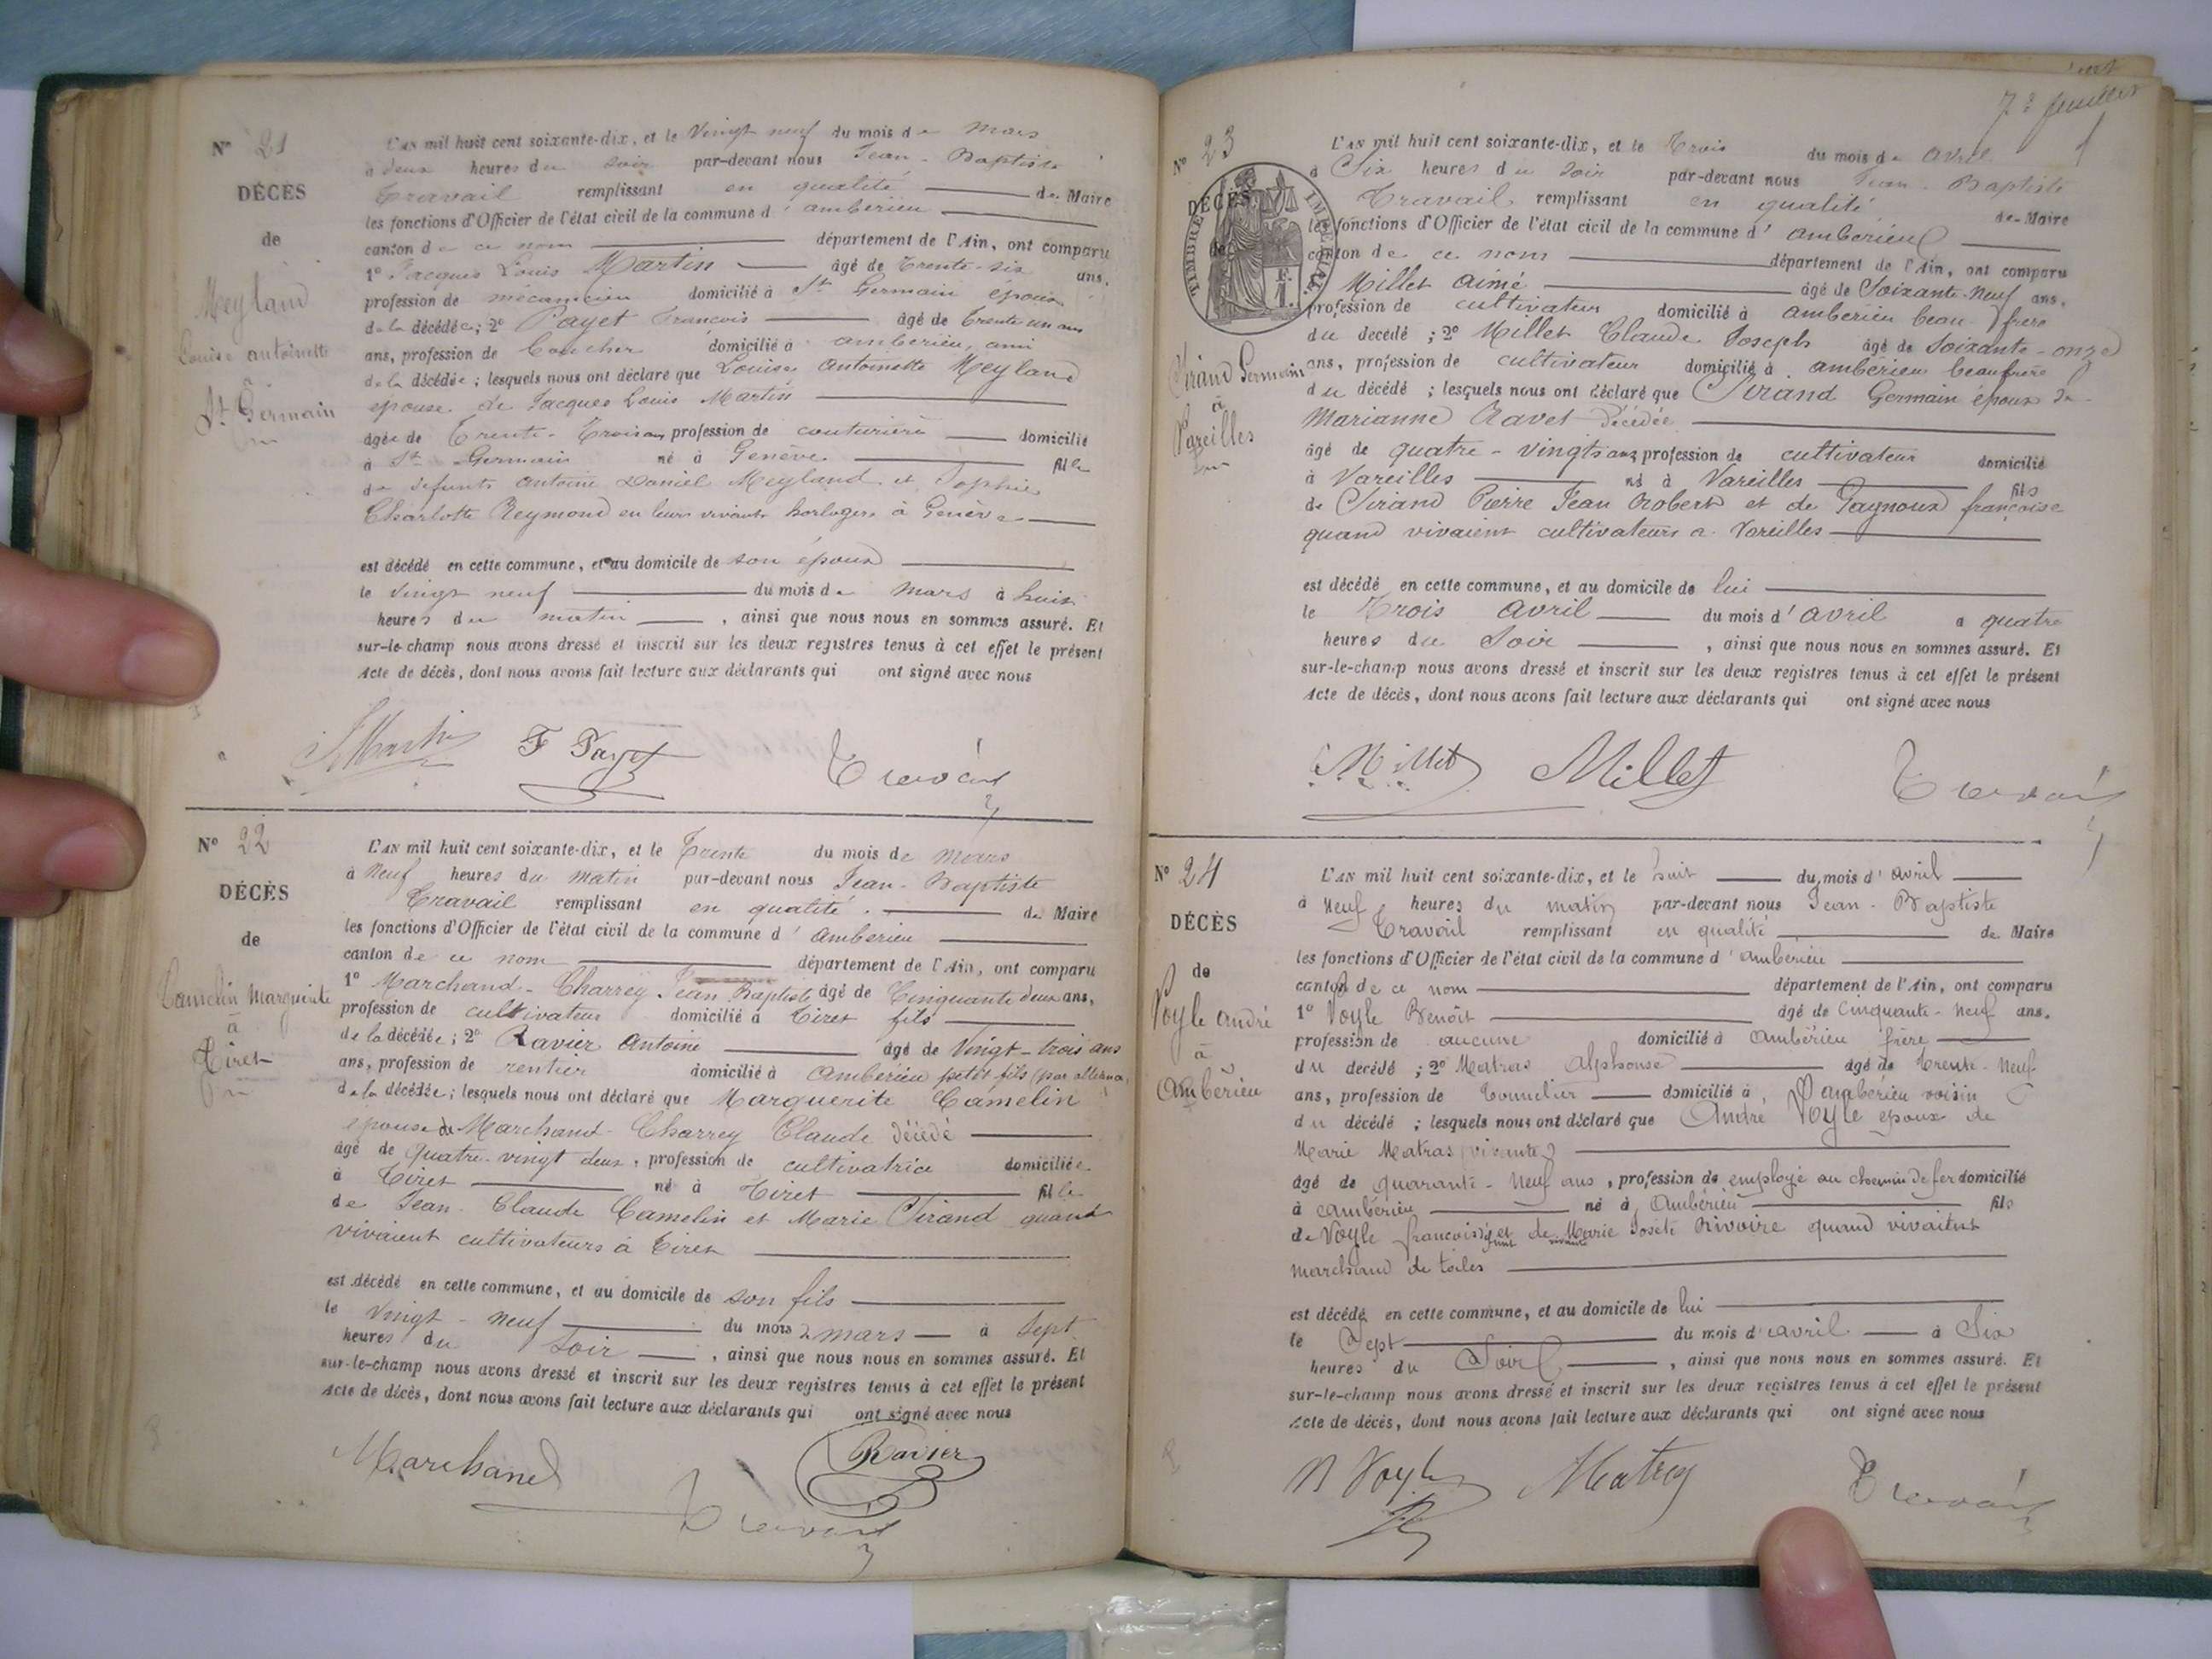 N° 21
DÉCÈS
de
Meyland
Louise antoinette
à
St Germain
L'AN mil huit cent soixante-dix, et le Vingt neuf du mois de mars
à deux heures du soir par-devant nous Jean-Baptiste
Travail remplissant en qualité de Maire
les fonctions d'Officier de l'état civil de la commune d'ambérieu
canton de ce nom département de l'Ain, ont comparu
1° Jacques Louis Martin âgé de trente-six ans,
profession de mécanicien domicilié à St Germain époux
de la décédée; 2° Payet François âgé de trente un ans
ans, profession de domicilié à ambérieu, ami
de la décédée; lesquels nous ont déclaré que Louise Antoinette Meyland
épouse de Jacques Louis Martin
âgée de Trente-Trois ans profession de couturière domicilié
à St Germain né à Genève fille
de defunts Antoine Daniel Meyland et Sophie
Charlotte Reymond en leurs vivants horlogers à Genève
est décédé en cette commune, et au domicile de son époux
le vingt neuf du mois de mars à huit
heures du matin, ainsi que nous nous en sommes assuré. Et
sur-le-champ nous avons dressé et inscrit sur les deux registres tenus à cet effet le présent
Acte de décès, dont nous avons fait lecture aux déclarants qui ont signé avec nous
Martin F Payet Travail
N° 22
DÉCÈS
de
Camelin Marguerite
à
Tiret
L'AN mil huit cent soixante-dix, et le Trente du mois de mars
à Neuf heures du matin par-devant nous Jean-Baptiste
Travail remplissant en qualité de Maire
les fonctions d'Officier de l'état civil de la commune d'Ambérieu
canton de ce nom département de l'Ain, ont comparu
1° Marchand-Charrey Jean Baptiste âgé de Cinquante deux ans,
profession de cultivateur domicilié à Tiret fils
de la décédée; 2° Ravier Antoine âgé de Vingt-trois ans
ans, profession de rentier domicilié à Ambérieu petit fils (par alliance)
de la décédée; lesquels nous ont déclaré que Marguerite Camelin
épouse de Marchand-Charrey Claude décédé
âgé de quatre-vingt deux, profession de cultivatrice domiciliée
à Tiret né à Tiret fille
de Jean-Claude Camelin et Marie Sirand quand
vivaient cultivateurs à Tiret
est décédé en cette commune, et au domicile de son fils
le Vingt-neuf du mois de mars à Sept
heures du Soir, ainsi que nous nous en sommes assuré. Et
sur-le-champ nous avons dressé et inscrit sur les deux registres tenus à cet effet le présent
Acte de décès, dont nous avons fait lecture aux déclarants qui ont signé avec nous
Marchand Ravier
Travail
7e feuillet
N° 23
DÉCÈS
de
TIMBRE IMPÉRIAL
F.
1.
Sirand Germain
à
Vareilles
L'AN mil huit cent soixante-dix, et le Trois du mois de Avril
à Six heures du soir par-devant nous Jean-Baptiste
Travail remplissant en qualité de Maire
les fonctions d'Officier de l'état civil de la commune d'Ambérieu
canton de ce nom département de l'Ain, ont comparu
Millet Aimé âgé de Soixante-Neuf ans,
profession de cultivateur domicilié à Ambérieu beau-frère
du décédé; 2° Millet Claude Joseph âgé de Soixante-onze
ans, profession de cultivateur domicilié à ambérieu beaufrère
du décédé; lesquels nous ont déclaré que Sirand Germain époux de
Marianne Ravet décédée
âgé de quatre-vingts ans profession de cultivateur domicilié
à Vareilles né à Vareilles fils
de Sirand Pierre Jean Robert et de françoise
quand vivaient cultivateurs à Vareilles
est décédé en cette commune, et au domicile de lui
le Trois Avril du mois d'avril à quatre
heures du Soir, ainsi que nous nous en sommes assuré. Et
sur-le-champ nous avons dressé et inscrit sur les deux registres tenus à cet effet le présent
Acte de décès, dont nous avons fait lecture aux déclarants qui ont signé avec nous
Millet Millet Travail
N° 24
DÉCÈS
de
Voyle André
à
Ambérieu
L'AN mil huit cent soixante-dix, et le huit du mois d'avril
à Neuf heures du matin par-devant nous Jean-Baptiste
Travail remplissant en qualité de Maire
les fonctions d'Officier de l'état civil de la commune d'ambérieu
canton de ce nom département de l'Ain, ont comparu
1° Voyle Benoît âgé de Cinquante-neuf ans,
profession de aucune domicilié à Ambérieu frère
du décédé; 2° Matras Alphonse âgé de trente-neuf
ans, profession de Tonnelier domicilié à ambérieu voisin
du décédé; lesquels nous ont déclaré que André Voyle époux de
Marie Matras (vivante)
âgé de quarante-neuf ans, profession de employé au chemin de fer domicilié
à ambérieu né à Ambérieu fils
de Voyle françois défunt et de Marie Josète Rivoire vivante quand vivaient
marchand de toiles
est décédé en cette commune, et au domicile de lui
le Sept du mois d'avril à Six
heures du Soir, ainsi que nous nous en sommes assuré. Et
sur-le-champ nous avons dressé et inscrit sur les deux registres tenus à cet effet le présent
Acte de décès, dont nous avons fait lecture aux déclarants qui ont signé avec nous
B Voyle Matras Travail